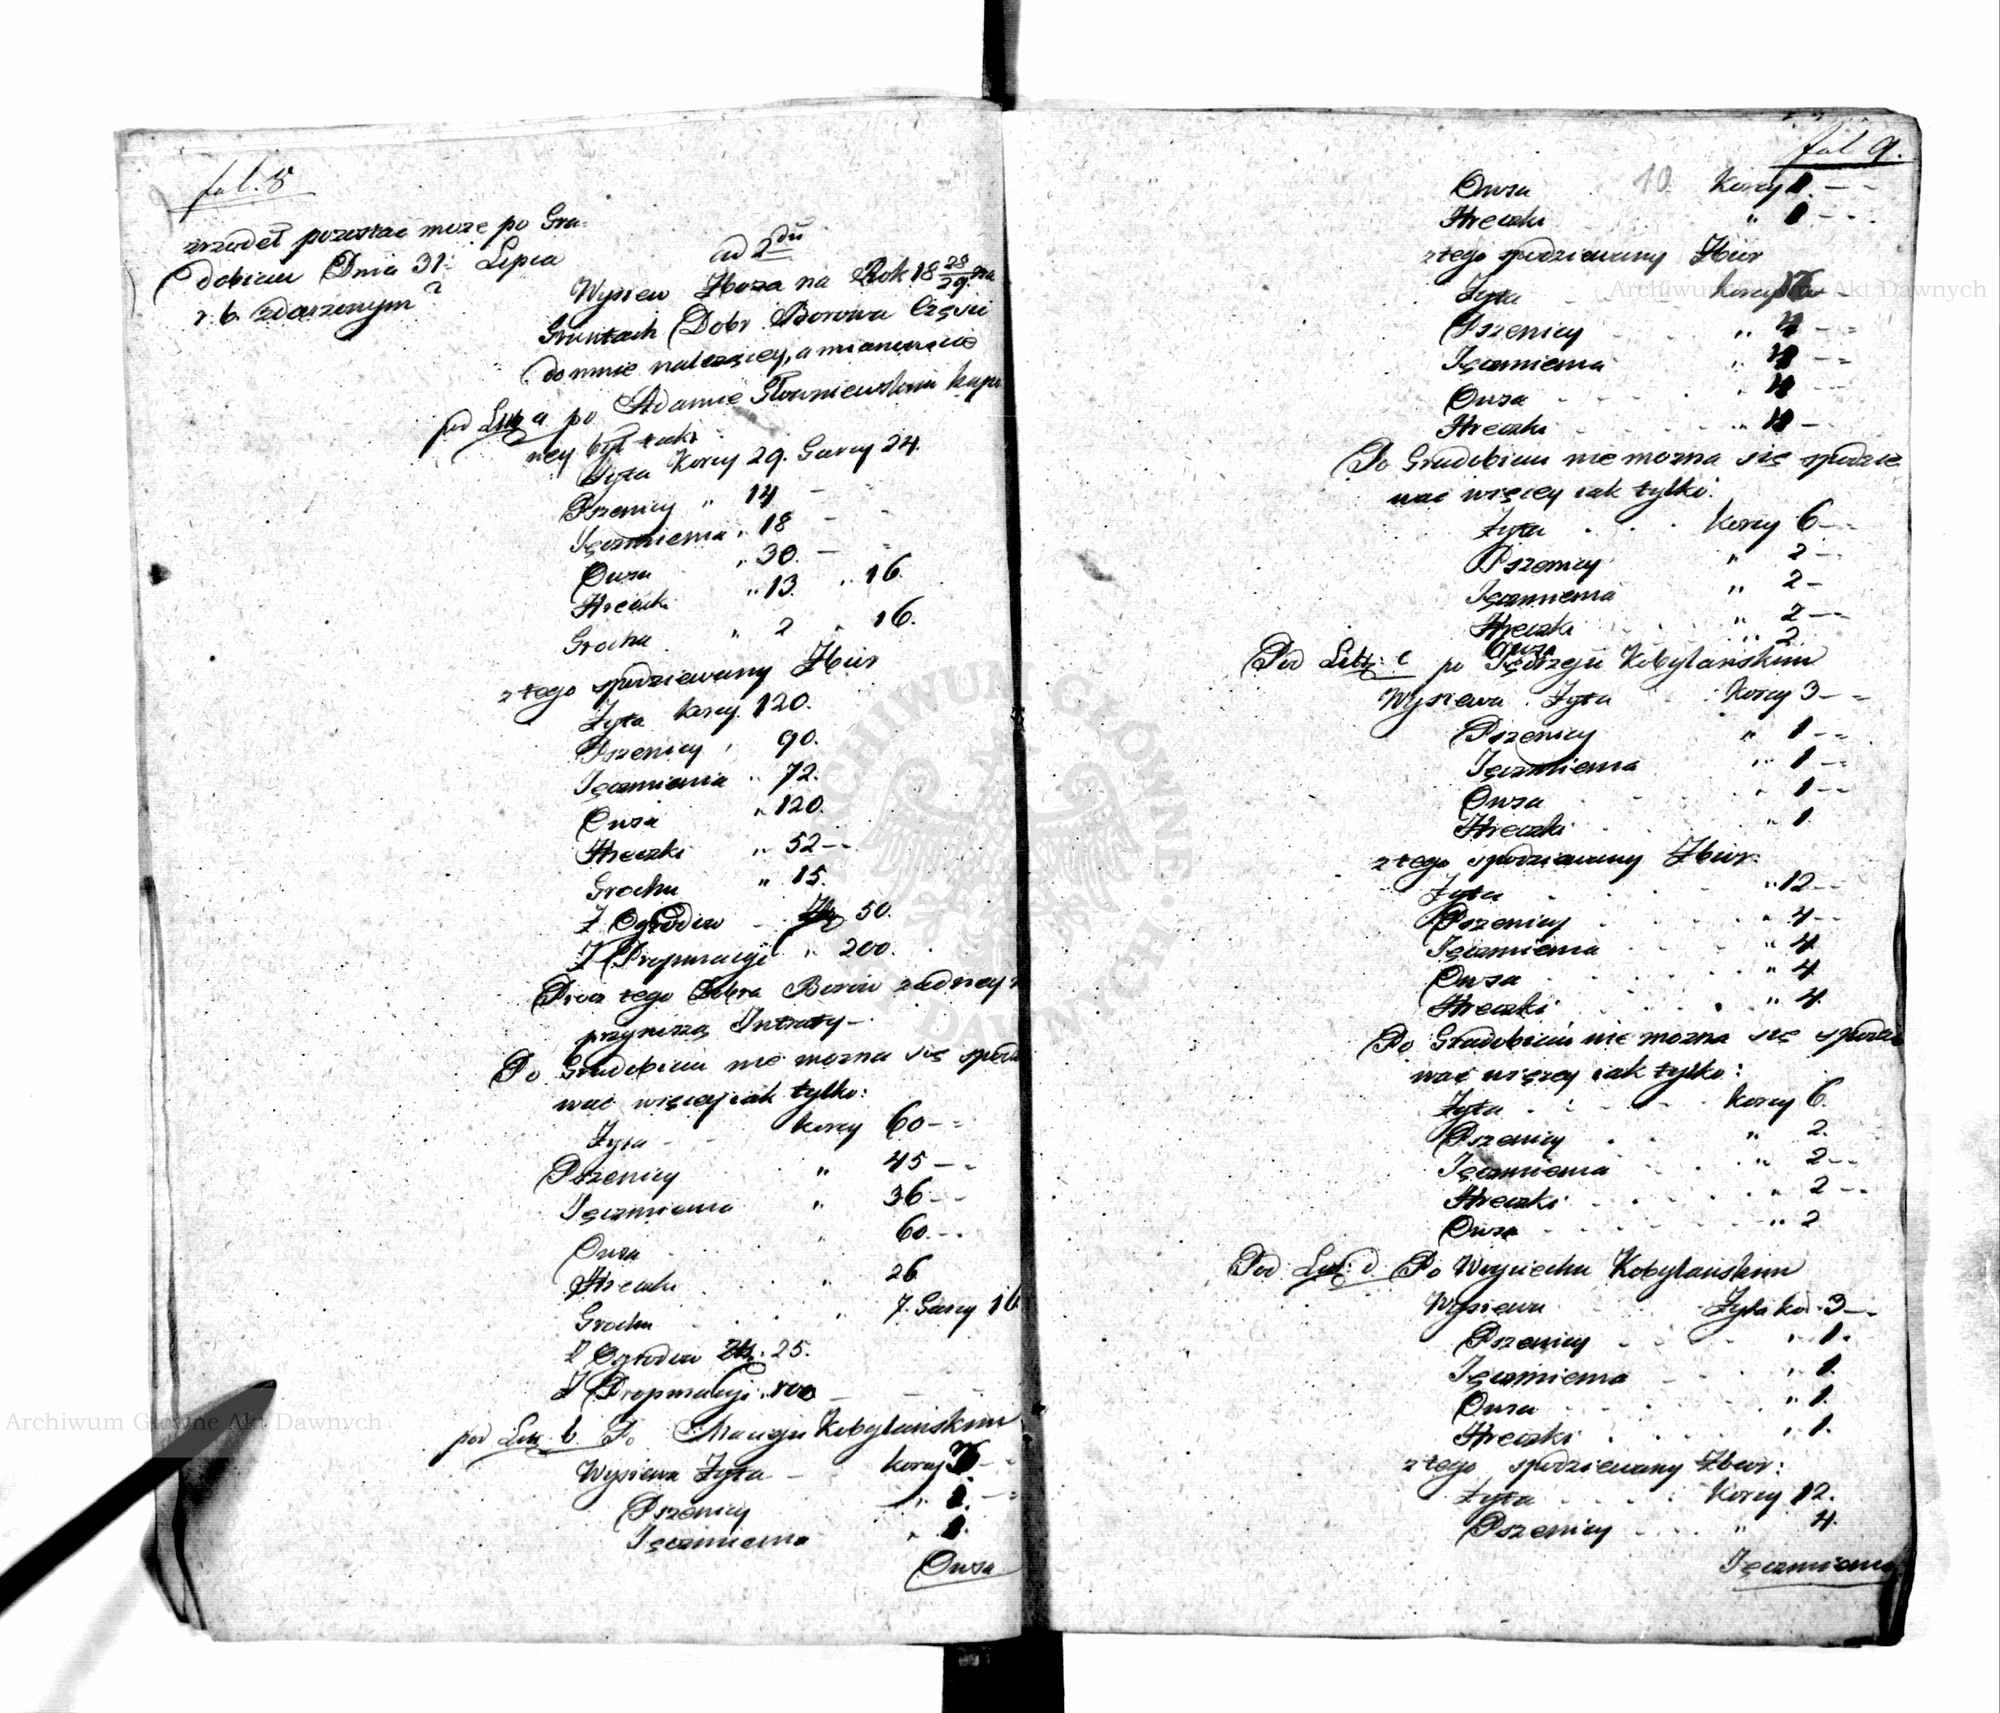 fol. 8
zrzodeł pozostać może po Gra=
dobiciu Dnia 31. Lipca
r. b. zdarzonym?
ad 2du
Wysiew Zboża na Rok 18 28/29 na
Gruntach Dobr Borowa Części
do mnie należącey, a mianowicie
pod Litt a po Adamie Głowniewskim kupio
ney był taki
Żyta Korcy 29. Garcy 24.
Pszenicy " 14 -
Jęczmienia " 18 -
Owsa " 30. -
Hreczki " 13. " 16.
Grochu " 2 " 16.
z tego spodziewany Zbiór
Żyta korcy 120.
Pszenicy " 90.
Jęczmienia " 72.
Owsa " 120.
Hreczki " 52 --
Grochu " 15.
Z Ogrodow - Złp 50.
Z Propinacyi " 200.
Procz tego Dobra Borów żadney
przynoszą Intraty -
Po Gradobiciu nie można się spodzie
wać więcey iak tylko:
Żyta - korcy 60 --
Pszenicy " 45 --
Jęczmienia " 36 --
Owsa " 60. --
Hreczki " 26
Grochu " 7. Garcy 16
Z Ogrodow Złp. 25.
Z Propinacyi " 100 -
pod Litt. b. Po Macieju Kobylańskim
Wysiewa Żyta - korcy 3 --
Pszenicy " 1. --
Jęczmienia " 1.
Owsa
fol 9.
10
Owsa Korcy 1. --
Hreczki " 1 --
z tego spodziewany Zbiór
Żyta korcy 12 -
Pszenicy " 4 --
Jęczmienia " 4 --
Owsa " 4 --
Hreczki " 4 -
Po Gradobiciu nie można się spodzie
wać więcey iak tylko:
Żyta korcy 6 --
Pszenicy " 2 --
Jęczmienia " 2 -
Hreczki " 2 --
Owsa " 2
Pod Litt: c po Jędrzeju Kobylańskim
Wysiewa Żyta Korcy 3 --
Pszenicy " 1 --
Jęczmienia " 1 --
Owsa " 1 --
Hreczki " 1.
z tego spodziewany Zbiór:
Żyta " 12 --
Pszenicy " 4 --
Jęczmienia " 4
Owsa " 4
Hreczki " 4.
Po Gradobiciu nie można się spodzie
wać więcey iak tylko:
Żyta korcy 6.
Pszenicy " 2.
Jęczmienia " 2 --
Hreczki " 2 --
Owsa " 2
Pod Litt: d. Po Woyciechu Kobylańskim
Wysiewu Żyta kor. 3 --
Pszenicy " 1.
Jęczmienia " 1.
Owsa " 1.
Hreczki " 1.
z tego spodziewany Zbiór:
Żyta Korcy 12.
Pszenicy " 4.
Jęczmienia
Archiwum Główne Akt Dawnych
Archiwum Główne Akt Dawnych
ARCHIWUM GŁÓWNE AKT DAWNYCH